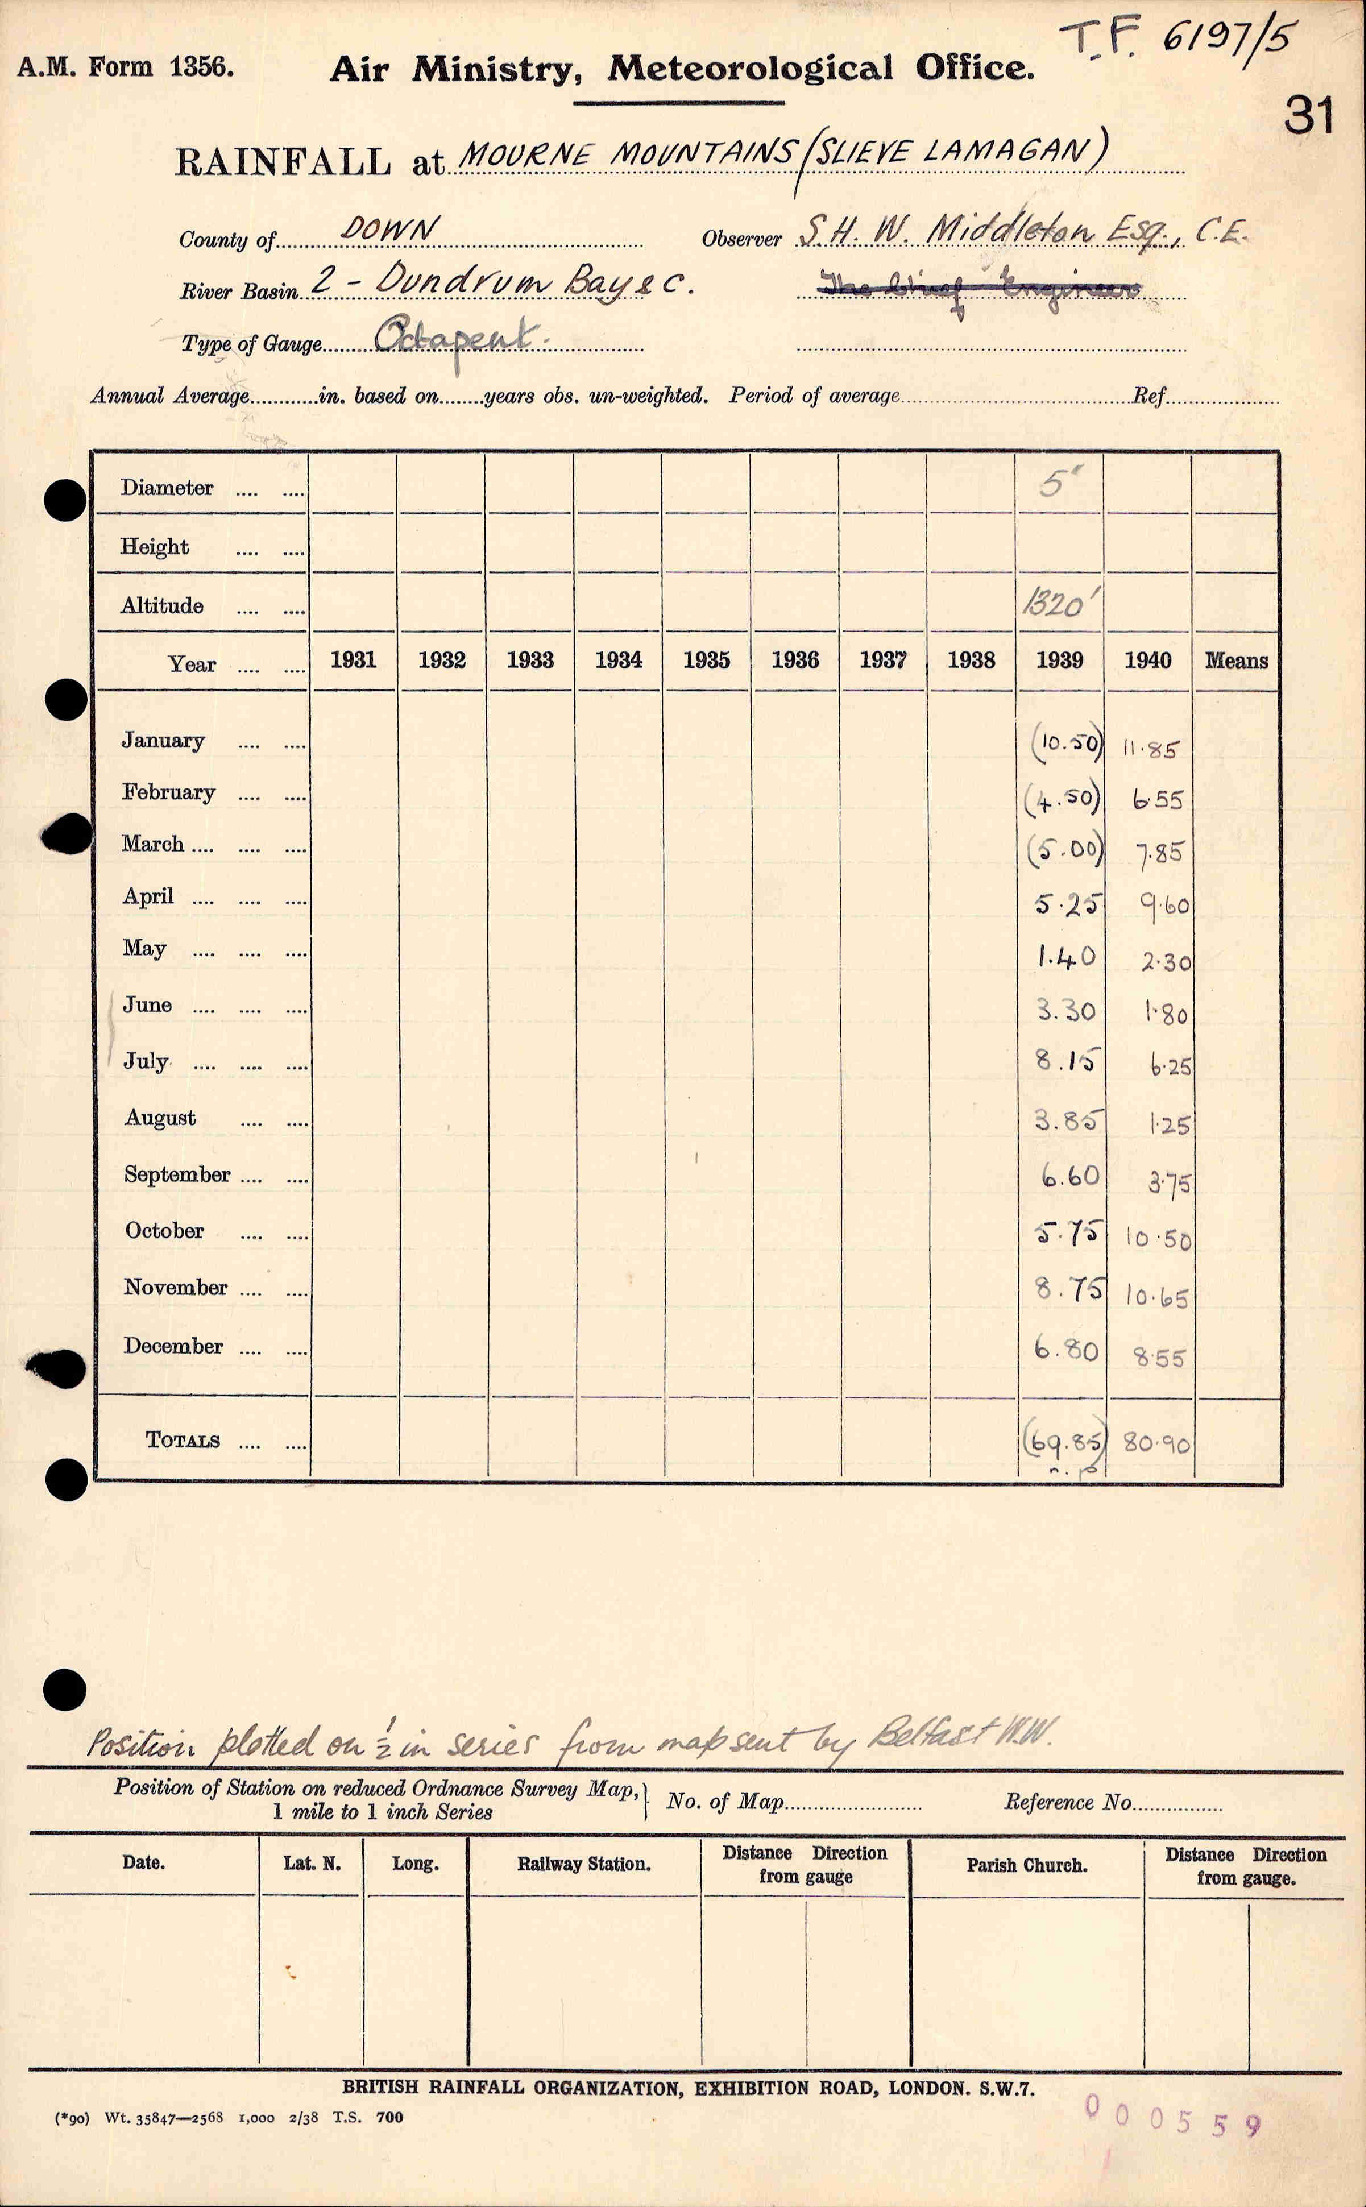 T.F. 6197/5
A.M. Form 1356. Air Ministry, Meteorological Office.
31
RAINFALL at MOURNE MOUNTAINS (SLIEVE LAMAGAN)
County of DOWN Observer S.H.W. Middleton Esq., C.E.
River Basin 2 - Dundrum Bay &c. The Chief Engineer
Type of Gauge Octapent.
Annual Average in. based on years obs. un-weighted. Period of average Ref
Diameter .... .... 5"
Height .... ....
Altitude .... .... 1320'
Year .... .... 1931 1932 1933 1934 1935 1936 1937 1938 1939 1940 Means
January .... .... (10.50) 11.85
February .... .... (4.50) 6.55
March .... .... .... (5.00) 7.85
April .... .... .... 5.25 9.60
May .... .... .... 1.40 2.30
June .... .... .... 3.30 1.80
July .... .... .... 8.15 6.25
August .... .... 3.85 1.25
September .... .... 6.60 3.75
October .... .... 5.75 10.50
November .... .... 8.75 10.65
December .... .... 6.80 8.55
TOTALS .... .... (69.85) 80.90
n.p
Position plotted on ½ in series from map sent by Belfast W.W.
Position of Station on reduced Ordnance Survey Map, 1 mile to 1 inch Series No. of Map Reference No.
Date. Lat. N. Long. Railway Station. Distance Direction from gauge Parish Church. Distance Direction from gauge.
BRITISH RAINFALL ORGANIZATION, EXHIBITION ROAD, LONDON. S.W.7.
(*90) Wt. 35847—2568 1,000 2/38 T.S. 700
000559